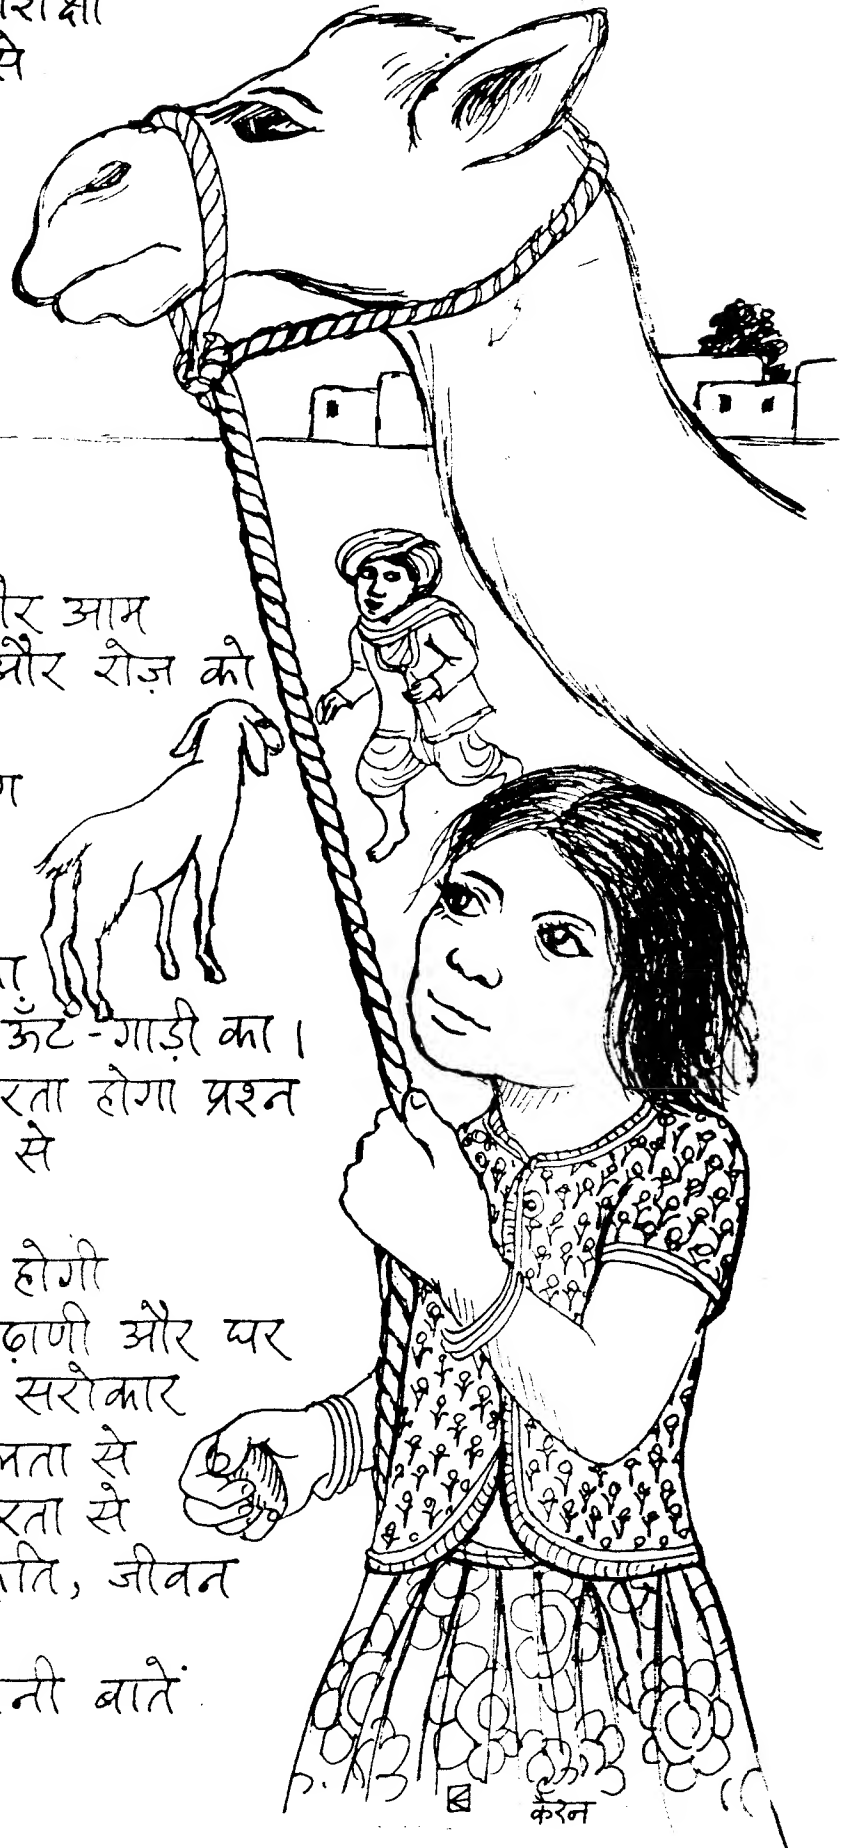 से
और आम
और रोज़ को
ऊँट-गाड़ी का।
रता होगा प्रश्न
से
होगी
ढ़ाणी और घर
सरोकार
लता से
रता से
ति, जीवन
नी बातें
कैरन